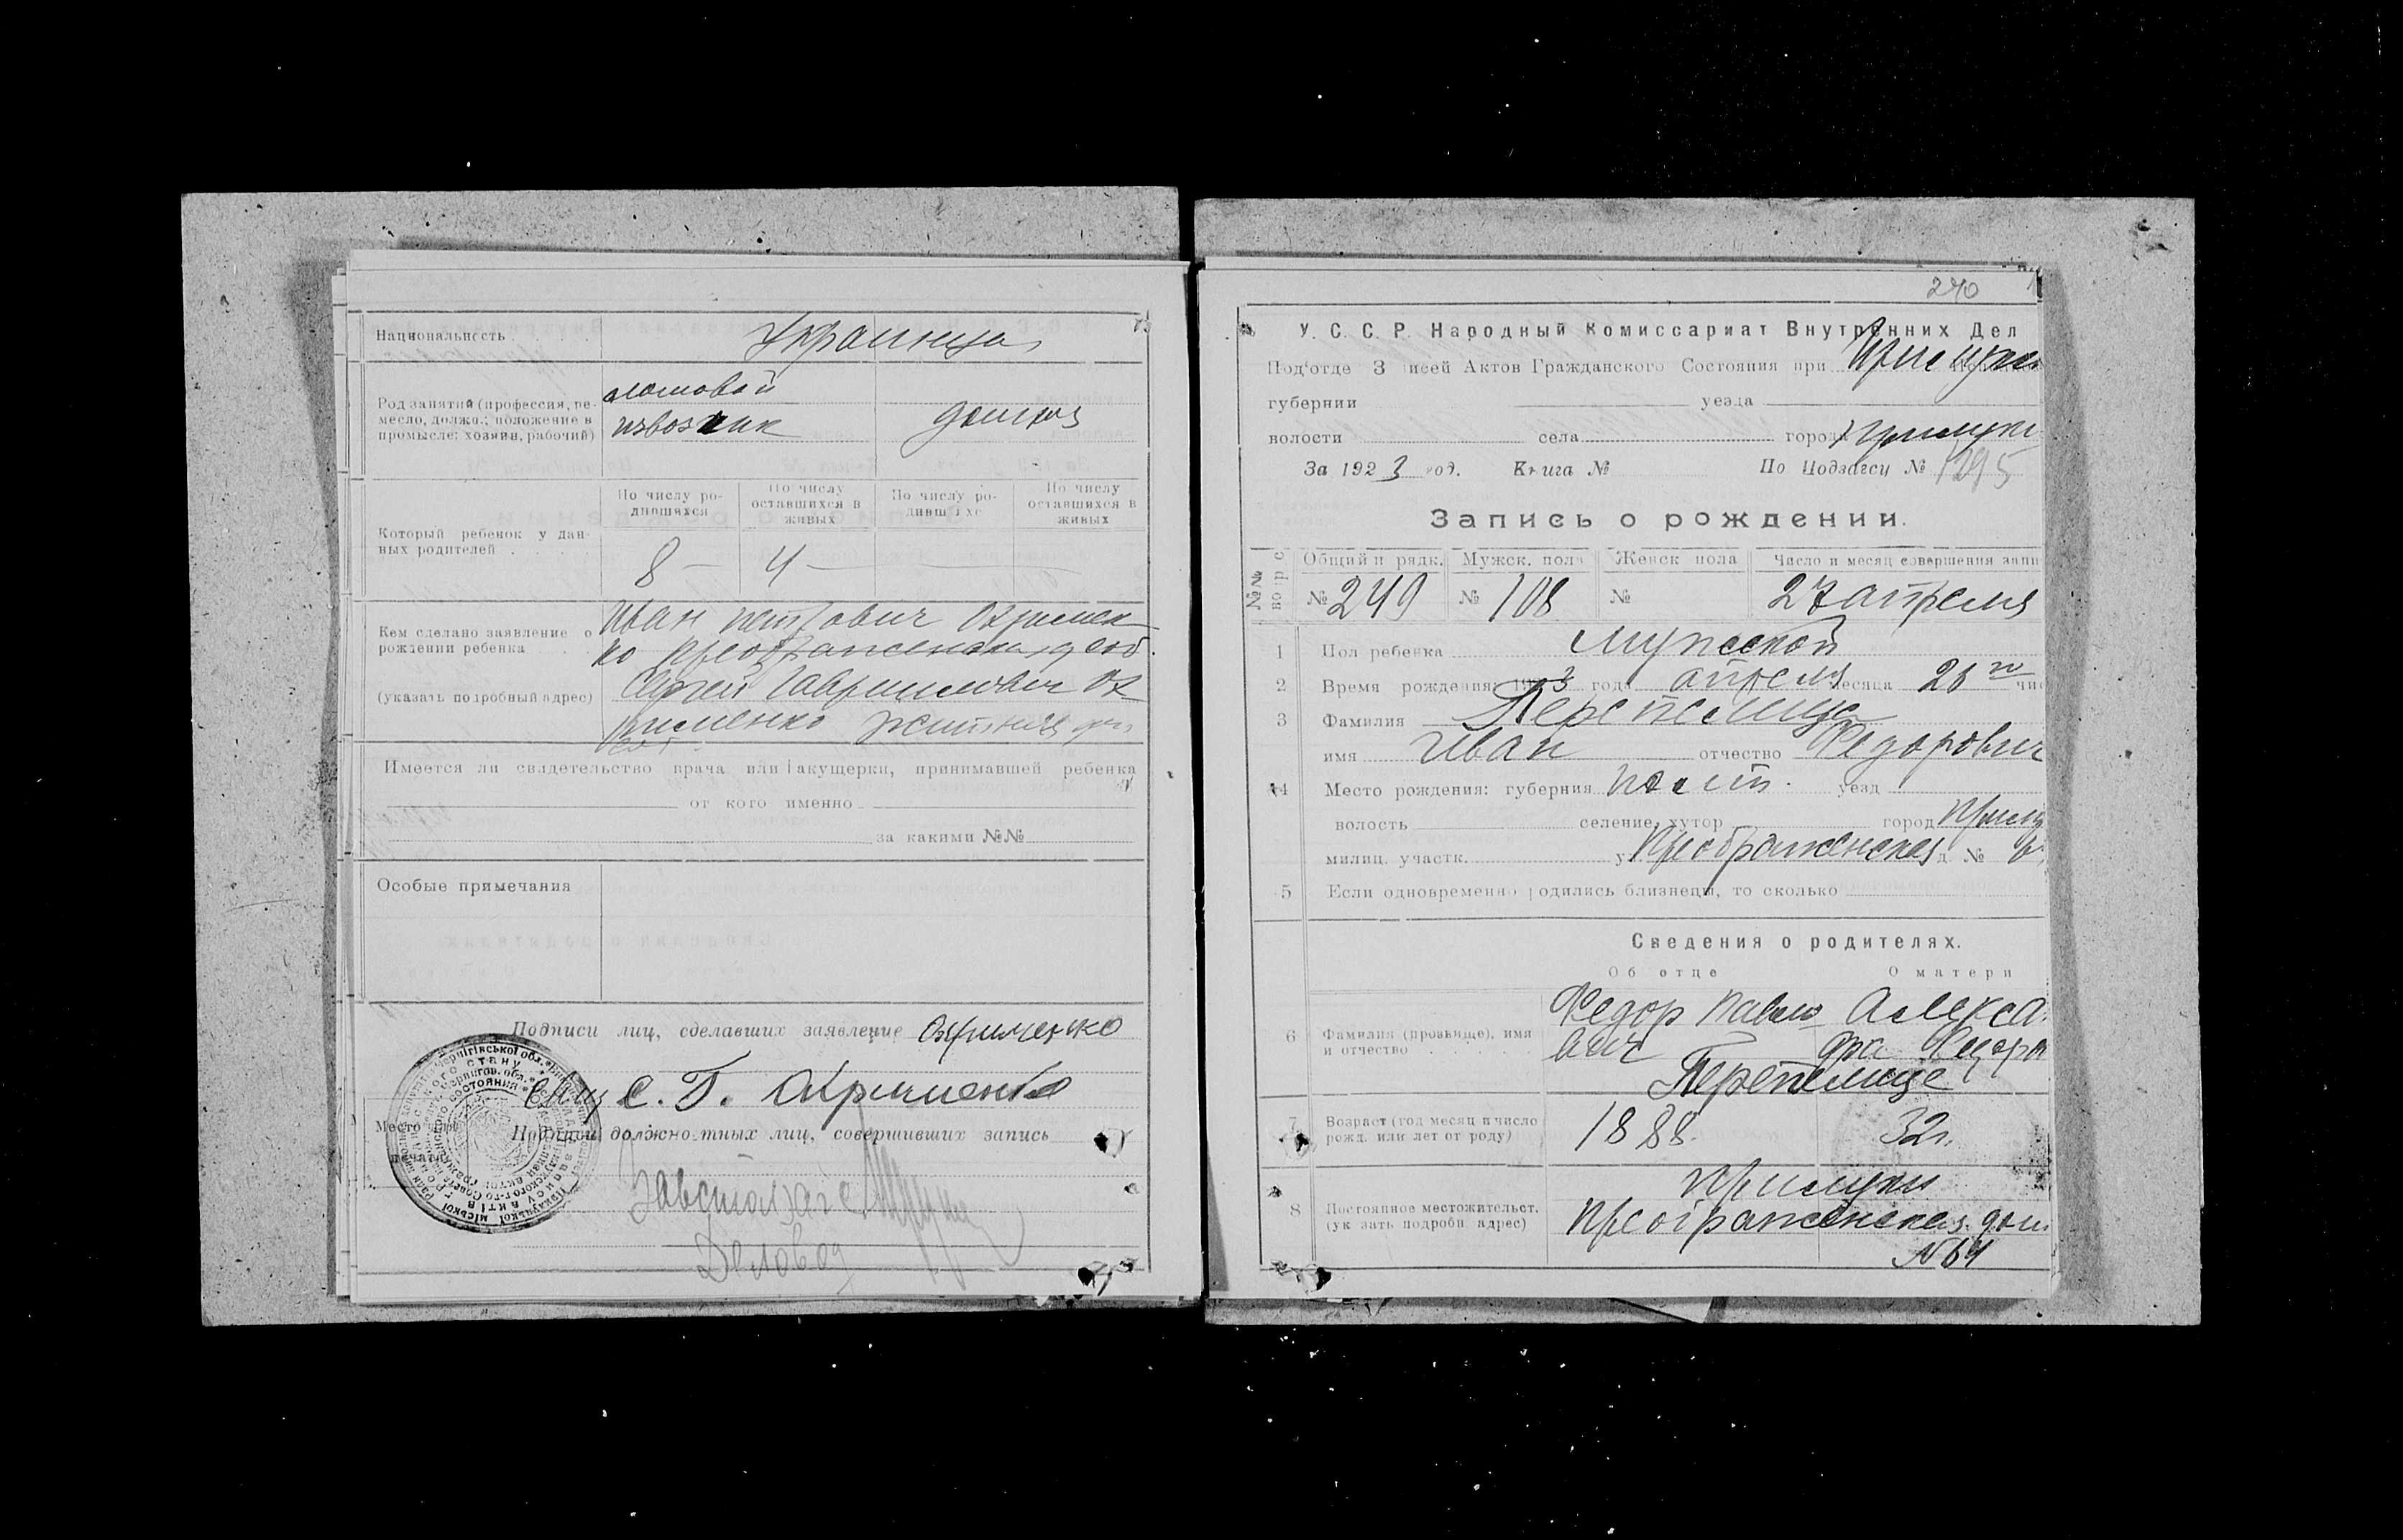 Национальность
Украинцы
Род занятий (профессия, ре-
месло, должн.; положение в
промысле: хозяин, рабочий)
ломовой
извозчик
домхоз
Который ребенок у дан-
ных родителей
По числу ро-
дившихся
По числу
оставшихся в
живых
По числу ро-
дивш хс
По числу
оставшихся в
живых
8 —
4 —
Кем сделано заявление о
рождении ребенка
(указать подробный адрес)
Иван Петрович Охримен
ко Преображенская, д соб.
Сергей Гаврилович Ох
рименко
Имеется ли свидетельство врача или акушерки, принимавшей ребенка
от кого именно
за какими №№
Особые примечания
Подписи лиц, сделавших заявление Охрименко
С. Г. Охрименко
Подписи должностных лиц, совершивших запись
Место для
печати
Завстолзагс
Деловод
240
У. С. С. Р. Народный Комиссариат Внутренних Дел
Под'отде З писей Актов Гражданского Состояния при
губернии уезда
волости села города Прилуки
За 1923 год. Книга № По Подзагсу № 1295
Запись о рождении.
№№
Общий п рядк. Мужск. пола Женск пола Число и месяц совершения запи
№ 249 № 108 № 27 апреля
1 Пол ребенка Мужской
2 Время рождения: 1923 года апреля месяца 26го чис
3 Фамилия Перепелица
имя Иван отчество Федорович
4 Место рождения: губерния Полт. уезд
волость селение, хутор город Прилу
милиц. участк. у Преображенская д № 6
5 Если одновременно родились близнецы, то сколько
Сведения о родителях.
Об отце О матери
6 Фамилия (прозвище), имя
и отчество
Федор Павло
вич
Алекса
дра Федоро
Перепелице
7 Возраст (год месяц и число
рожд. или лет от роду)
1888. 32 л.
8 Постоянное местожительст.
(ук зать подробн. адрес)
Прилуки
Преображенская дом
№ 64